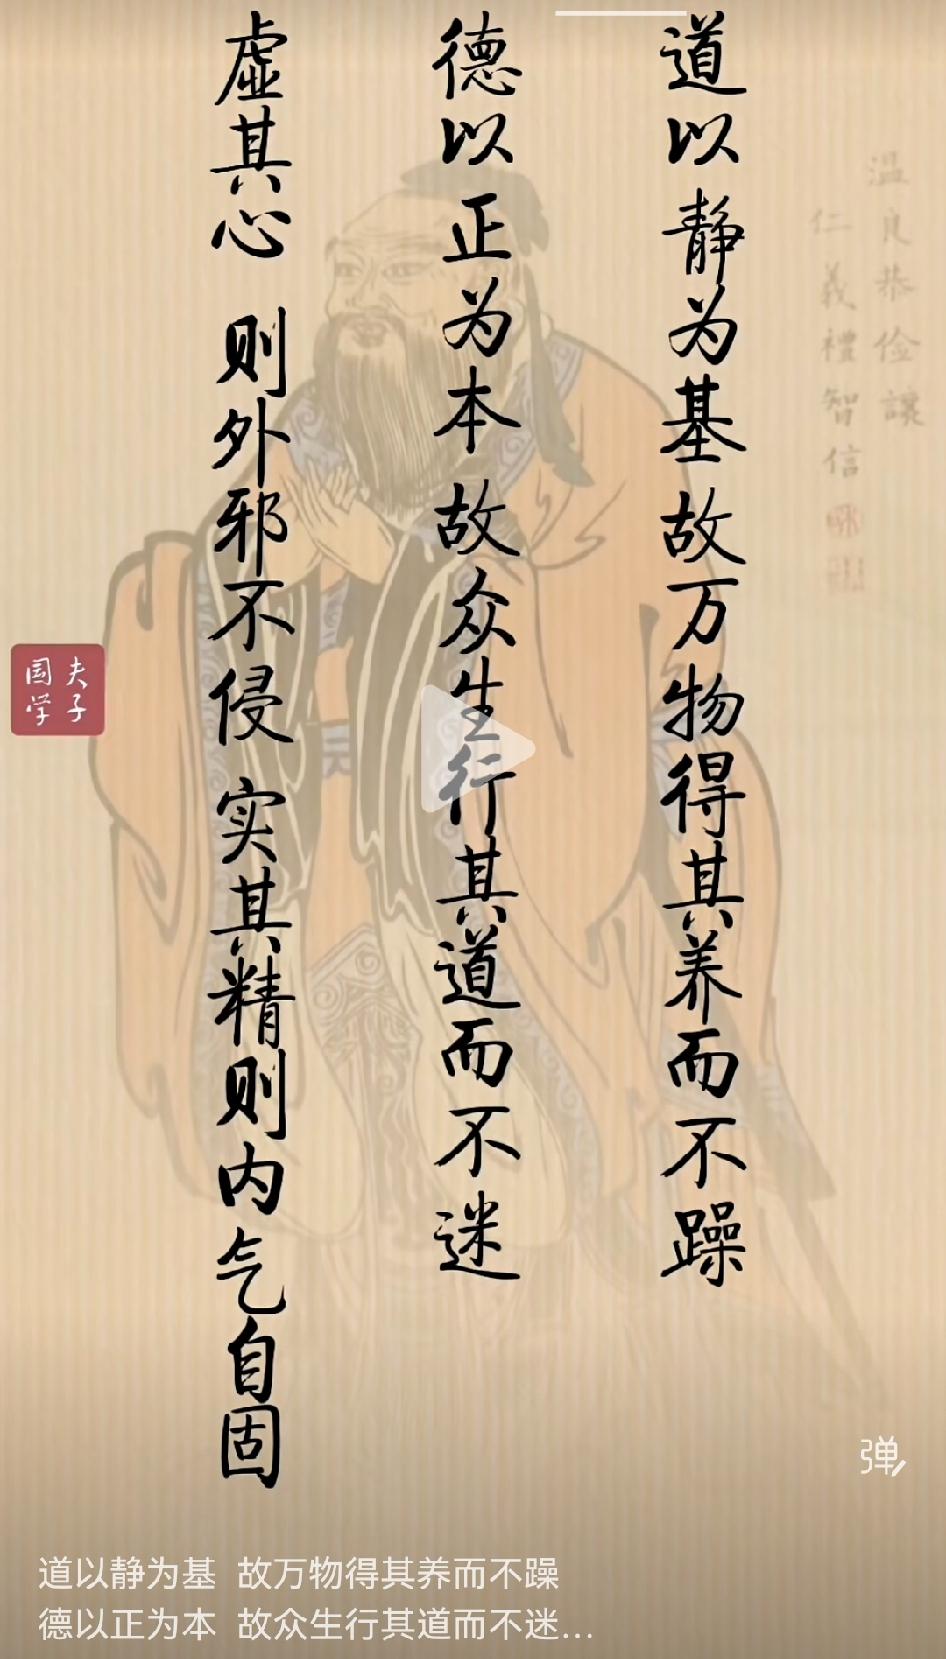 道以静为基 故万物得其养而不躁
德以正为本 故众生行其道而不迷
虚其心 则外邪不侵 实其精则内气自固
温良恭俭讓
仁義禮智信
夫子
国学
弹
道以静为基 故万物得其养而不躁
德以正为本 故众生行其道而不迷...